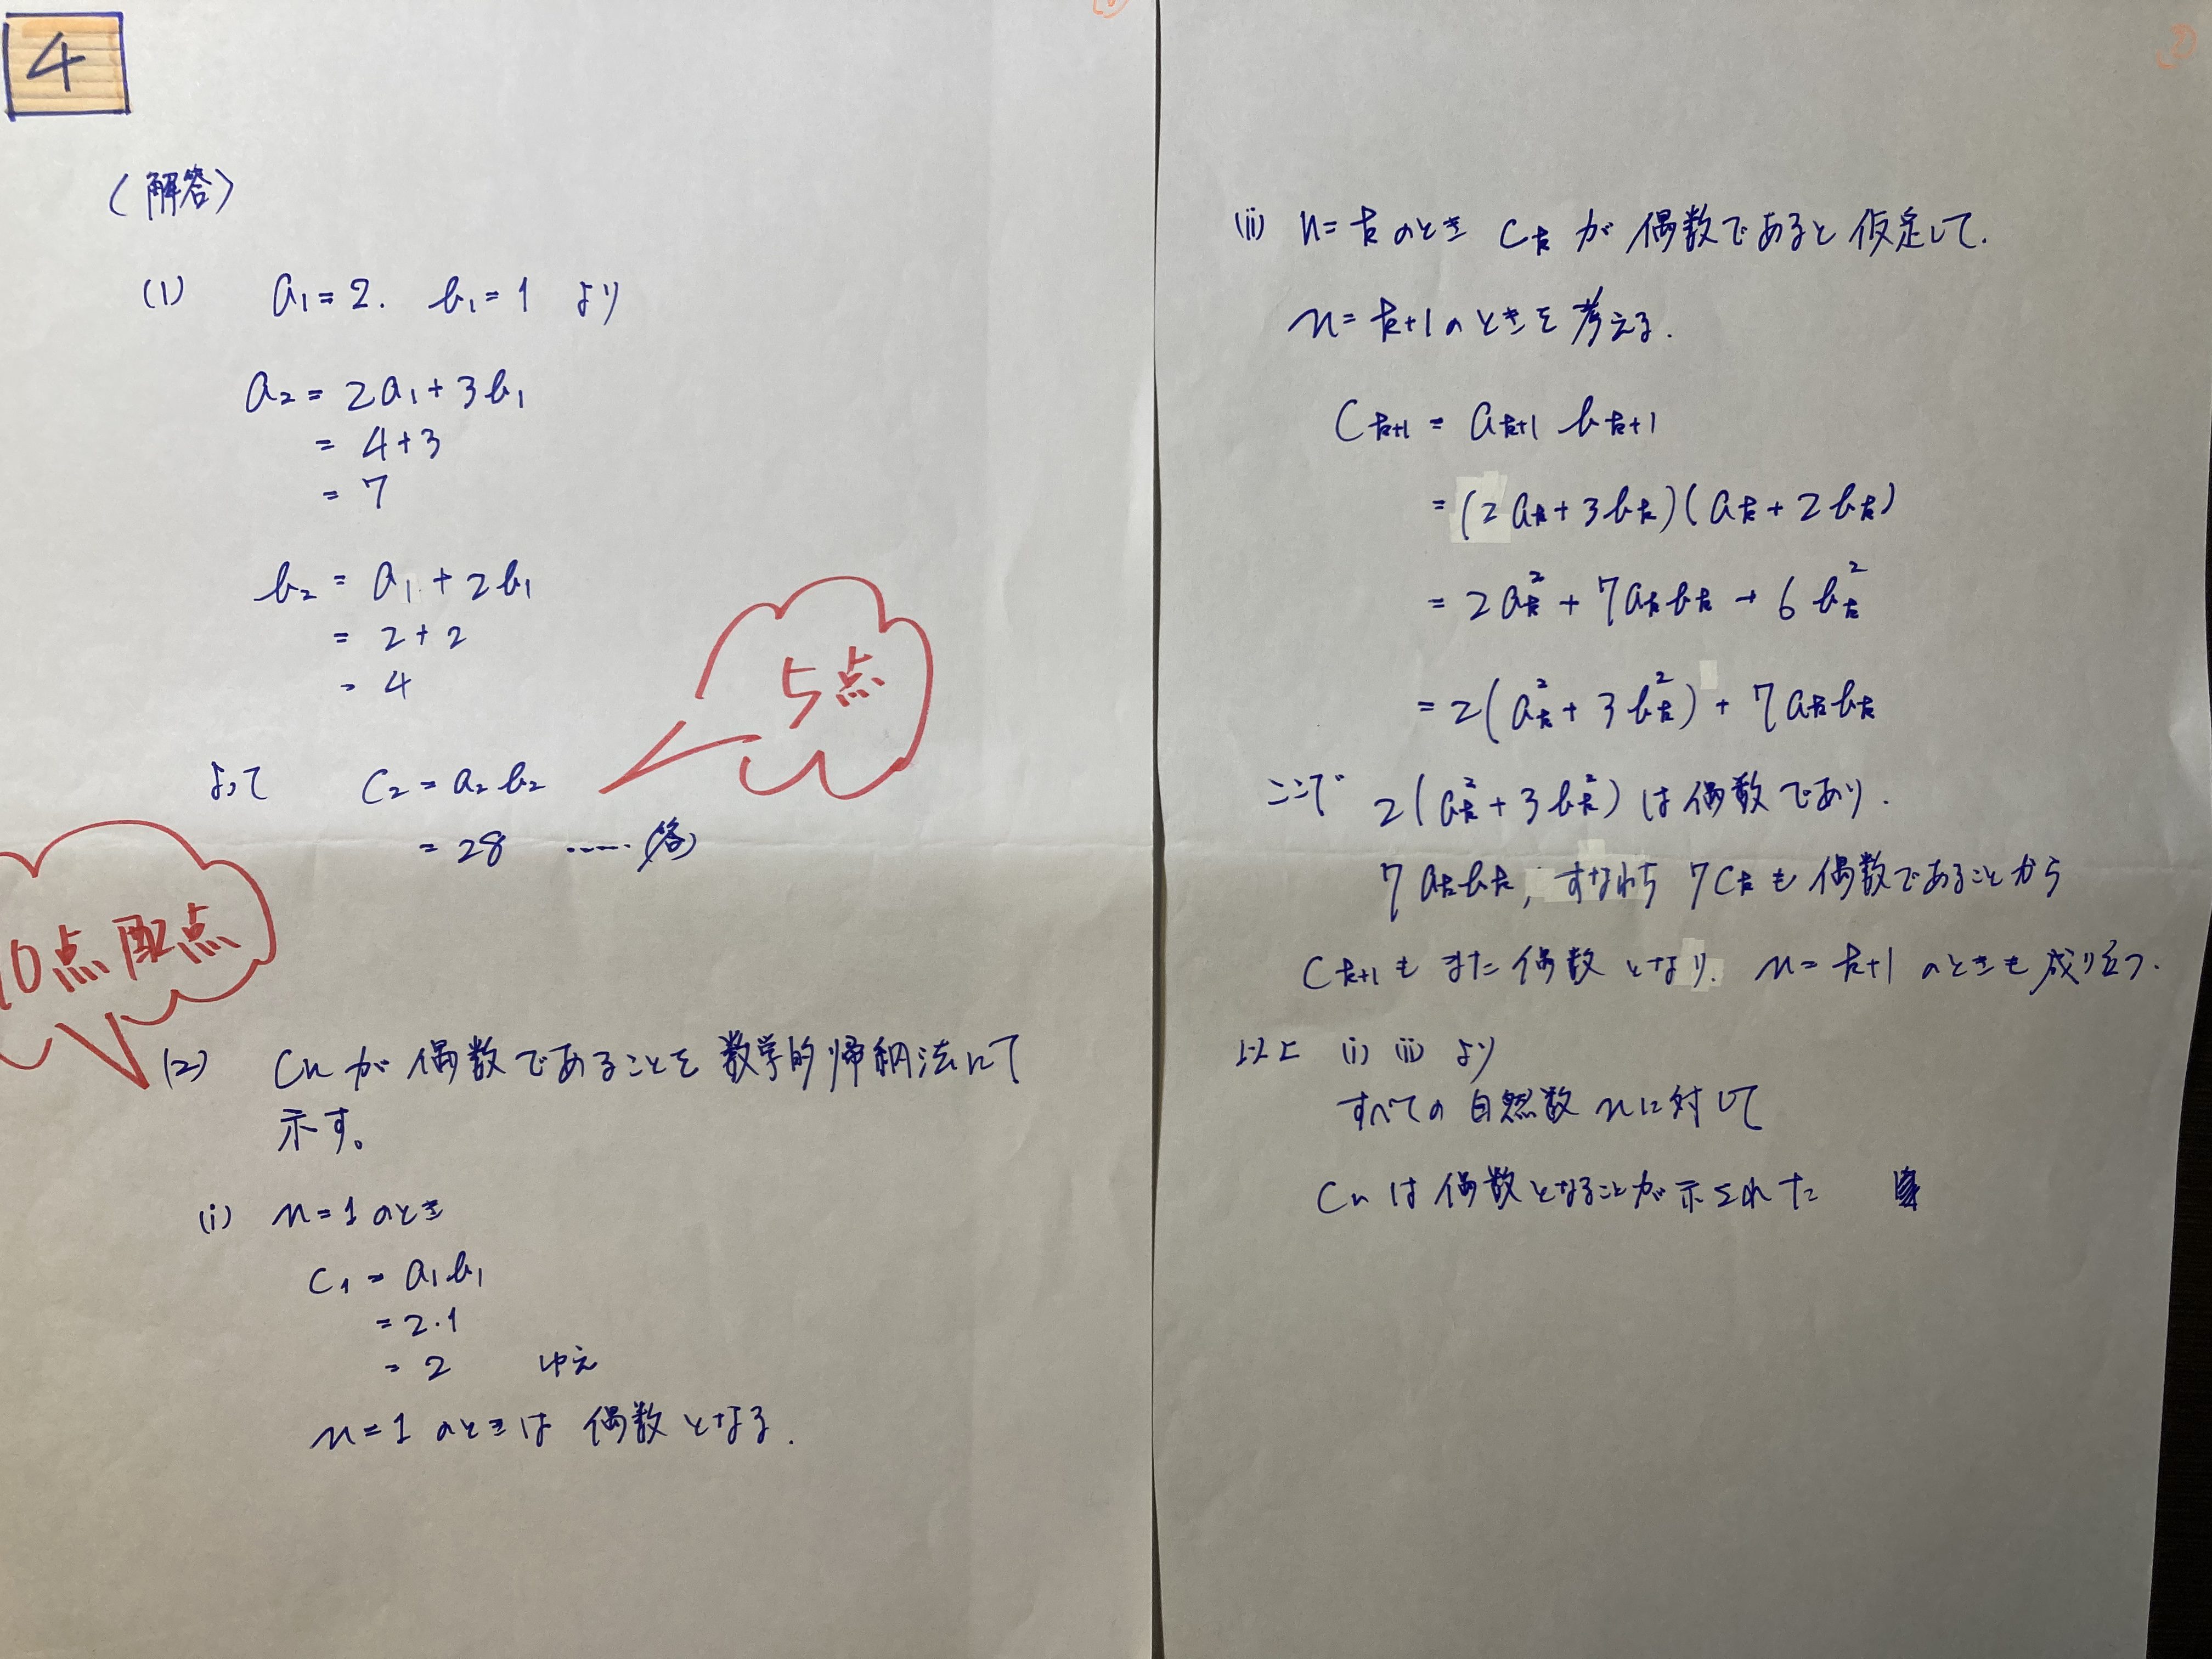 4
〈解答〉
(1) a₁=2. b₁=1 より
a₂ = 2a₁+3b₁
= 4+3
= 7
b₂ = a₁ + 2b₁
= 2+2
= 4
5点
よって c₂=a₂b₂
= 28 ……(答)
10点配点
(2) Cn が 偶数であることを数学的帰納法にて
示す。
(i) n=1のとき
C₁ = a₁b₁
= 2・1
= 2 ゆえ
n=1 のときは 偶数となる.
(ii) n=kのとき Ckが 偶数であると仮定して.
n=k+1のときを考える.
Ck+1 = ak+1 bk+1
=(2ak+3bk)(ak+2bk)
= 2ak²+7akbk+6bk²
=2(ak²+3bk²)+7akbk
ここで 2(ak²+3bk²)は偶数であり.
7akbk, すなわち 7Ckも偶数であることから
Ck+1もまた偶数となり. n=k+1 のときも成り立つ.
以上 (i) (ii) より
すべての自然数nに対して
Cnは偶数となることが示された